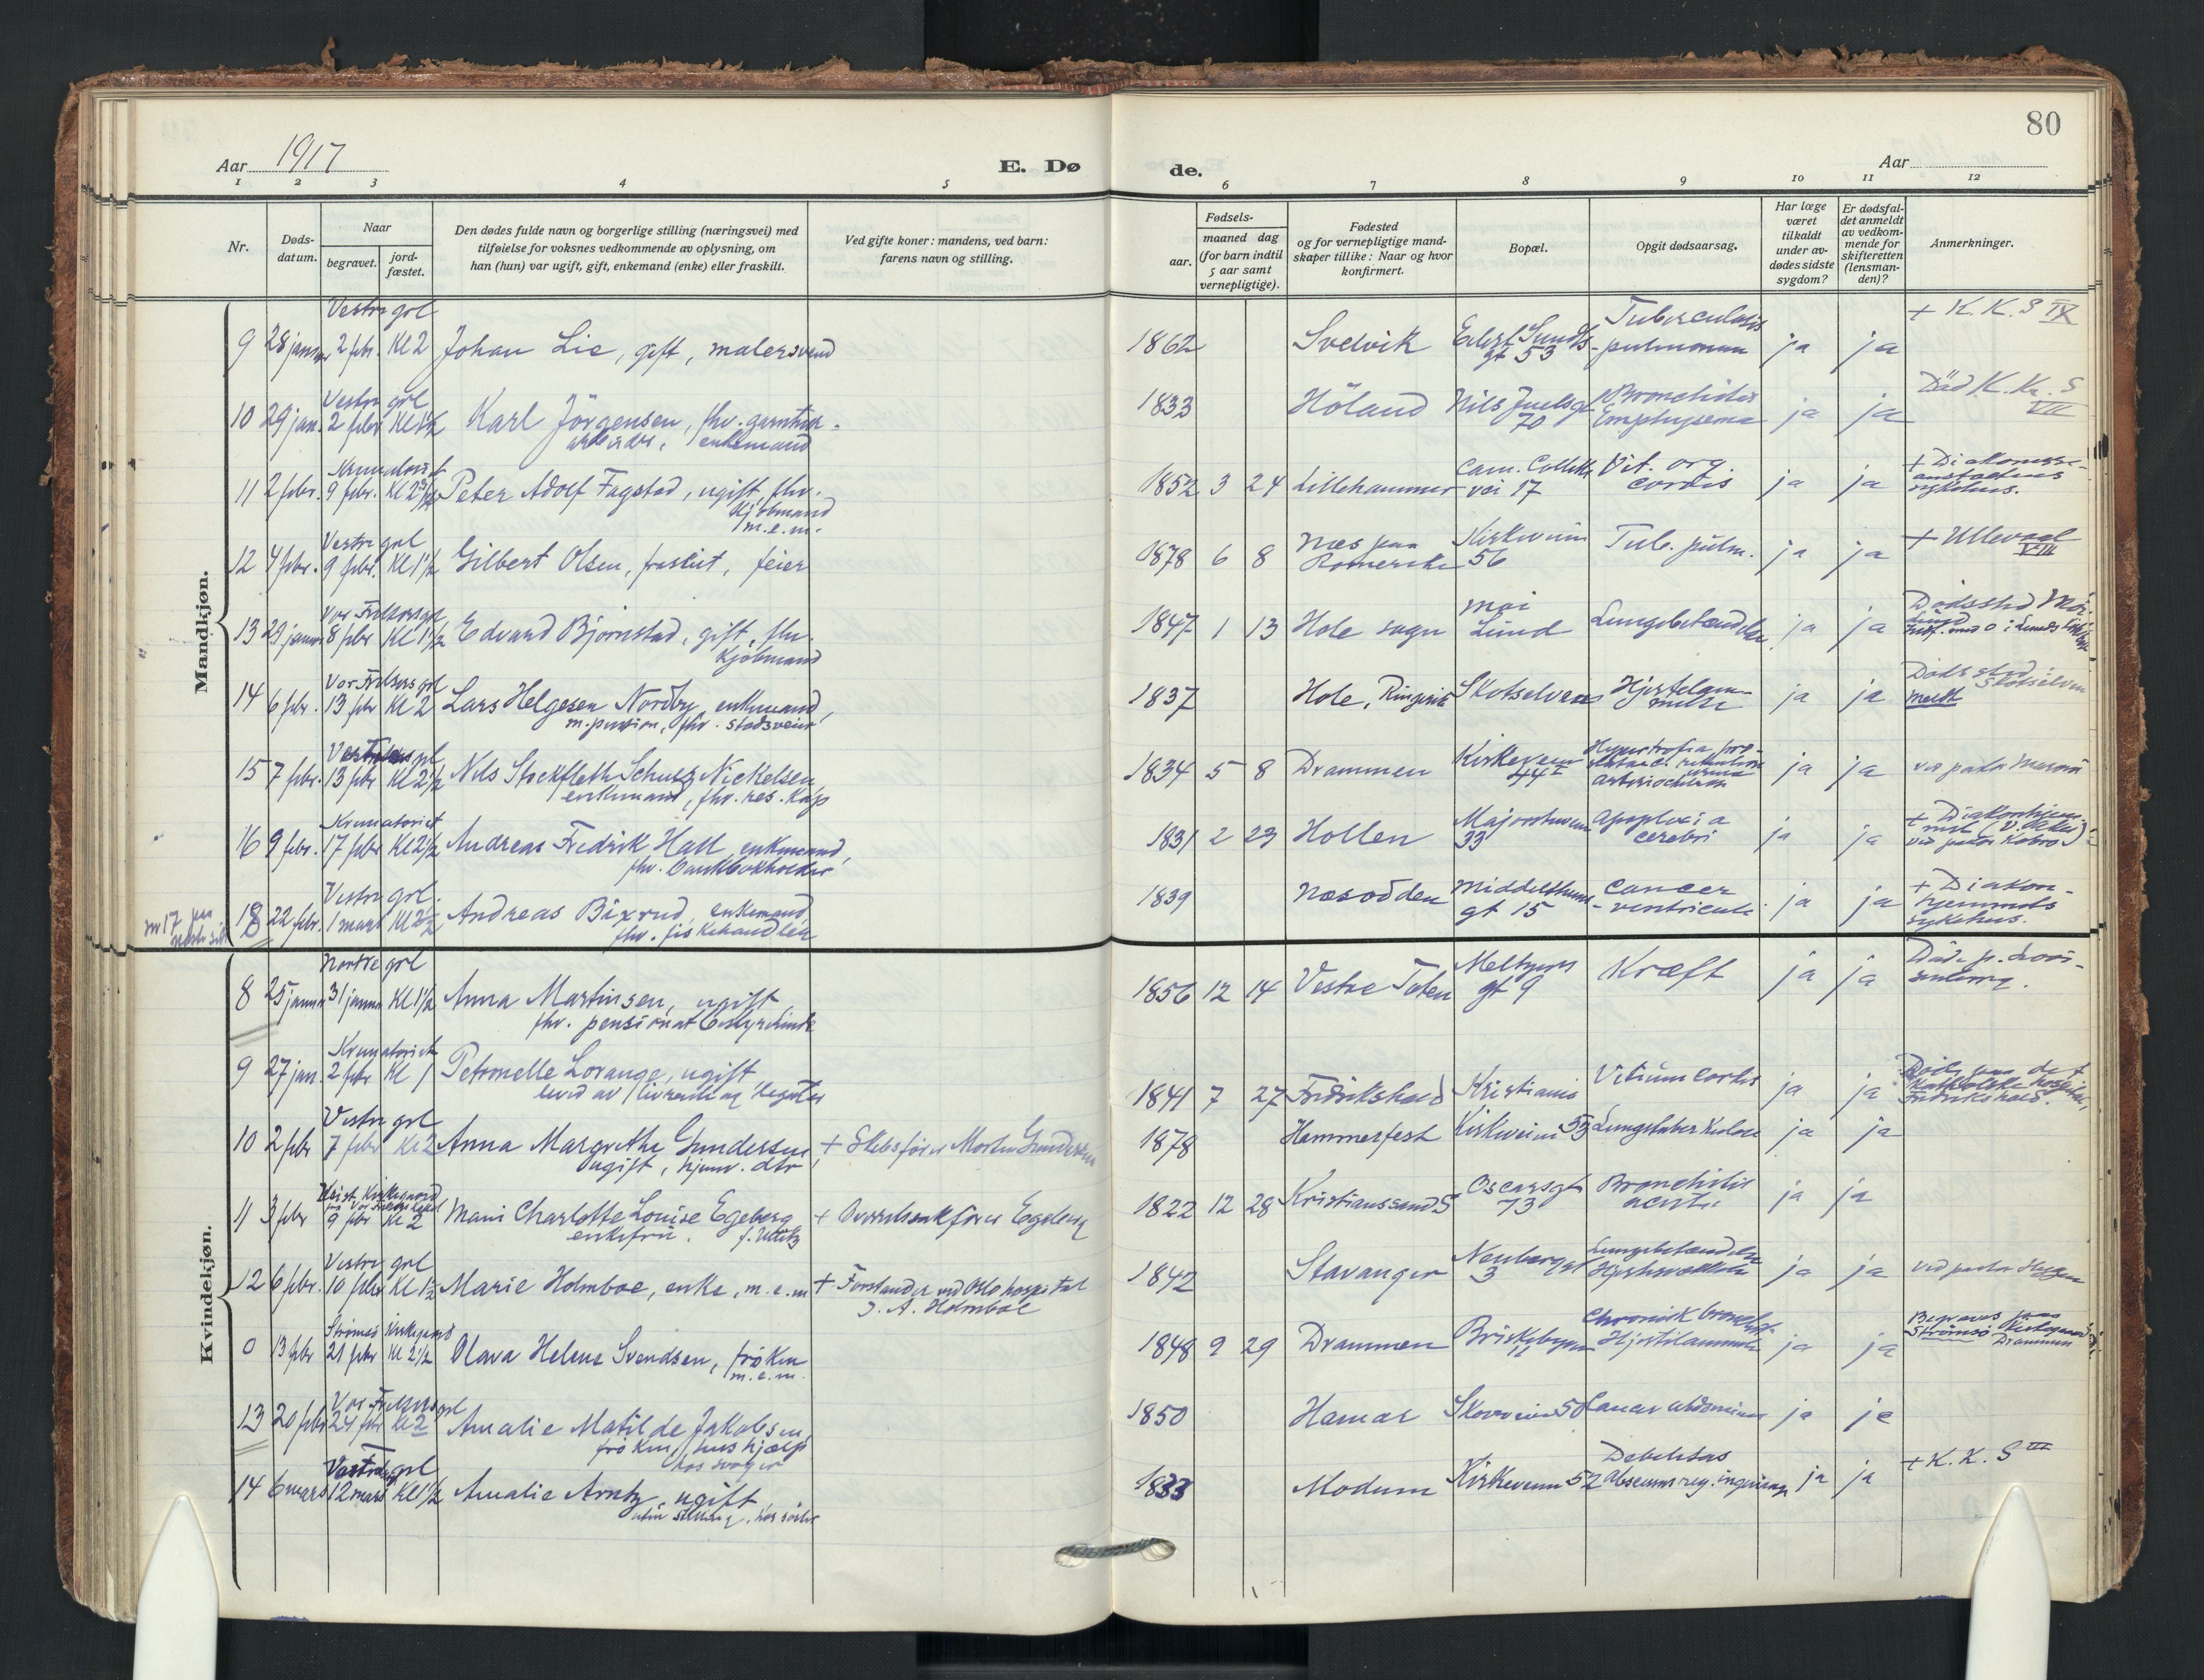 80
Aar 1917
E. Dø
de.
Aar
1 2 3 4 5 6 7 8 9 10 11 12
Nr.
Døds-
datum.
Naar
begravet.
jord-
fæstet.
Den dødes fulde navn og borgerlige stilling (næringsvei) med
tilføielse for voksnes vedkommende av oplysning, om
han (hun) var ugift, gift, enkemand (enke) eller fraskilt.
Ved gifte koner: mandens, ved barn:
farens navn og stilling.
Fødsels-
aar.
maaned dag
(for barn indtil
5 aar samt
vernepligtige).
Fødested
og for vernepligtige mand-
skaper tillike: Naar og hvor
konfirmert.
Bopæl.
Opgit dødsaarsag.
Har læge
været
tilkaldt
under av-
dødes sidste
sygdom?
Er dødsfal-
det anmeldt
av vedkom-
mende for
skifteretten
(lensman-
den)?
Anmerkninger.
Mandkjøn.
Vestre grl
9 28 januar 2 febr. Kl 2 Johan Lie, gift, malersvend
1862 Svelvik Eilert Sundts gt 53 Tuberculosis pulmonum ja ja + K. K. S IX
Vestre grl
10 29 jan. 2 febr Kl 1 1/2 Karl Jörgensen, fhv.
arbeider, enkemand
1833 Höland Nils Juels gt 70 Bronchitis Emphysema ja ja Död K. K. S VII
Krematoriet
11 2 febr. 9 febr. Kl 2 3/4 Peter Adolf Fagstad, ugift, fhv.
kjöbmand
m.e.m.
1852 3 24 Lillehammer Cam. Colletts vei 17 Vit. org. cordis ja ja + Diakonisse-
anstaltens
sykehus.
Vestre grl
12 4 febr. 9 febr. Kl 1 1/2 Gilbert Olsen, fraskilt, feier
1878 6 8 Næs paa Romerike Kirkeveien 56 Tub. pulm. ja ja + Ullevaal VIII
Vor Frelsers grl
13 29 januar 8 febr Kl 1 1/2 Edvard Björnstad, gift, fhv.
Kjöbmand
1847 1 13 Hole sogn Moi Lund Lungebetændelse ja ja Dödssted Moi
Lund
Vor Frelsers grl
14 6 febr. 13 febr Kl 2 Lars Helgesen Nordby, enkemand,
m. pension, fhv. stadsveier
1837 Hole, Ringerike Skotselven Hjertelam-
melse ja ja Dödssted Skotselven
Vestre grl
15 7 febr. 13 febr Kl 2 1/2 Nils Stockfleth Schulz Nickelsen
enkemand, fhv. res. Kap
1834 5 8 Drammen Kirkeveien 44 I ja ja ved pastor
Krematoriet
16 9 febr. 17 febr Kl 2 1/2 Andreas Fredrik Hall enkemand,
fhv. bankbokholder
1831 2 23 Hollen Majorstuveien 33 Apoplexia cerebri ja ja + Diakonhjem-
ved pastor Kobro
nr 17 paa
næste side
Vestre grl.
18 22 febr. 1 mars Kl 2 1/2 Andreas Bixrud, enkemand,
fhv. fiskehandler
1839 Næsodden Middelthuns gt 15 Cancer
ventriculi ja ja + Diakon-
hjemmets
sykehus.
Kvindekjøn.
Nordre grl
8 25 januar 31 januar Kl 1 1/2 Anna Martinsen, ugift,
fhv. pensionatbestyrerinde
1856 12 14 Vestre Toten Meltzers gt 9 Kræft ja ja
Krematoriet
9 27 jan. 2 febr Kl 1 Petronelle Lorange, ugift
levid av livrente og legater
1841 7 27 Fredrikshald Kristiania Vitium cordis ja ja Död paa det
katholske hospital,
Fredrikshald.
Vestre grl
10 2 febr 7 febr Kl 2 Anna Margrethe Gundersen,
ugift, hjemv. dtr
+ Skibsförer Morten Gundersen
1878 Hammerfest Kirkeveien 53 Lungetuberkulose ja ja
11 3 febr 9 febr Kl 2 Charlotte Louise Egeberg
enkefru.
1822 12 28 Kristianssand S Oscarsgt 73 Bronchitis
acuta ja ja
Vestre grl
12 6 febr. 10 febr Kl 1 1/2 Marie Holmboe, enke, m.e.m
+ Forstander ved Oslo hospital
J. A. Holmboe
1842 Stavanger Neubergsgt 3 Lungebetændelse
Hjertesvækkelse ja ja ved pastor Hyggen
Strömsö Kirkegaard
0 13 febr 21 febr Kl 2 1/2 Olava Helene Svendsen, fröken
m.e.m.
1848 9 29 Drammen Briskebyveien 11 Chronisk bronchit
Hjertelammelse ja ja Begraves paa
Strömsö Kirkegaard,
Drammen
Vor Frelsers grl
13 20 febr 24 febr Kl 2 Amalie Matilde Jakobsen,
fröken, hushjælp
hos svoger
1850 Hamar Skovveien 50 Cancer abdominis ja ja
Vestre grl
14 6 mars 12 mars Kl 1 1/2 Amalie Arntz, ugift,
uten stilling, hos söster
1833 Modum Kirkeveien 52 Debilitas
Abscessus reg. inguinae ja ja + K. K. S III